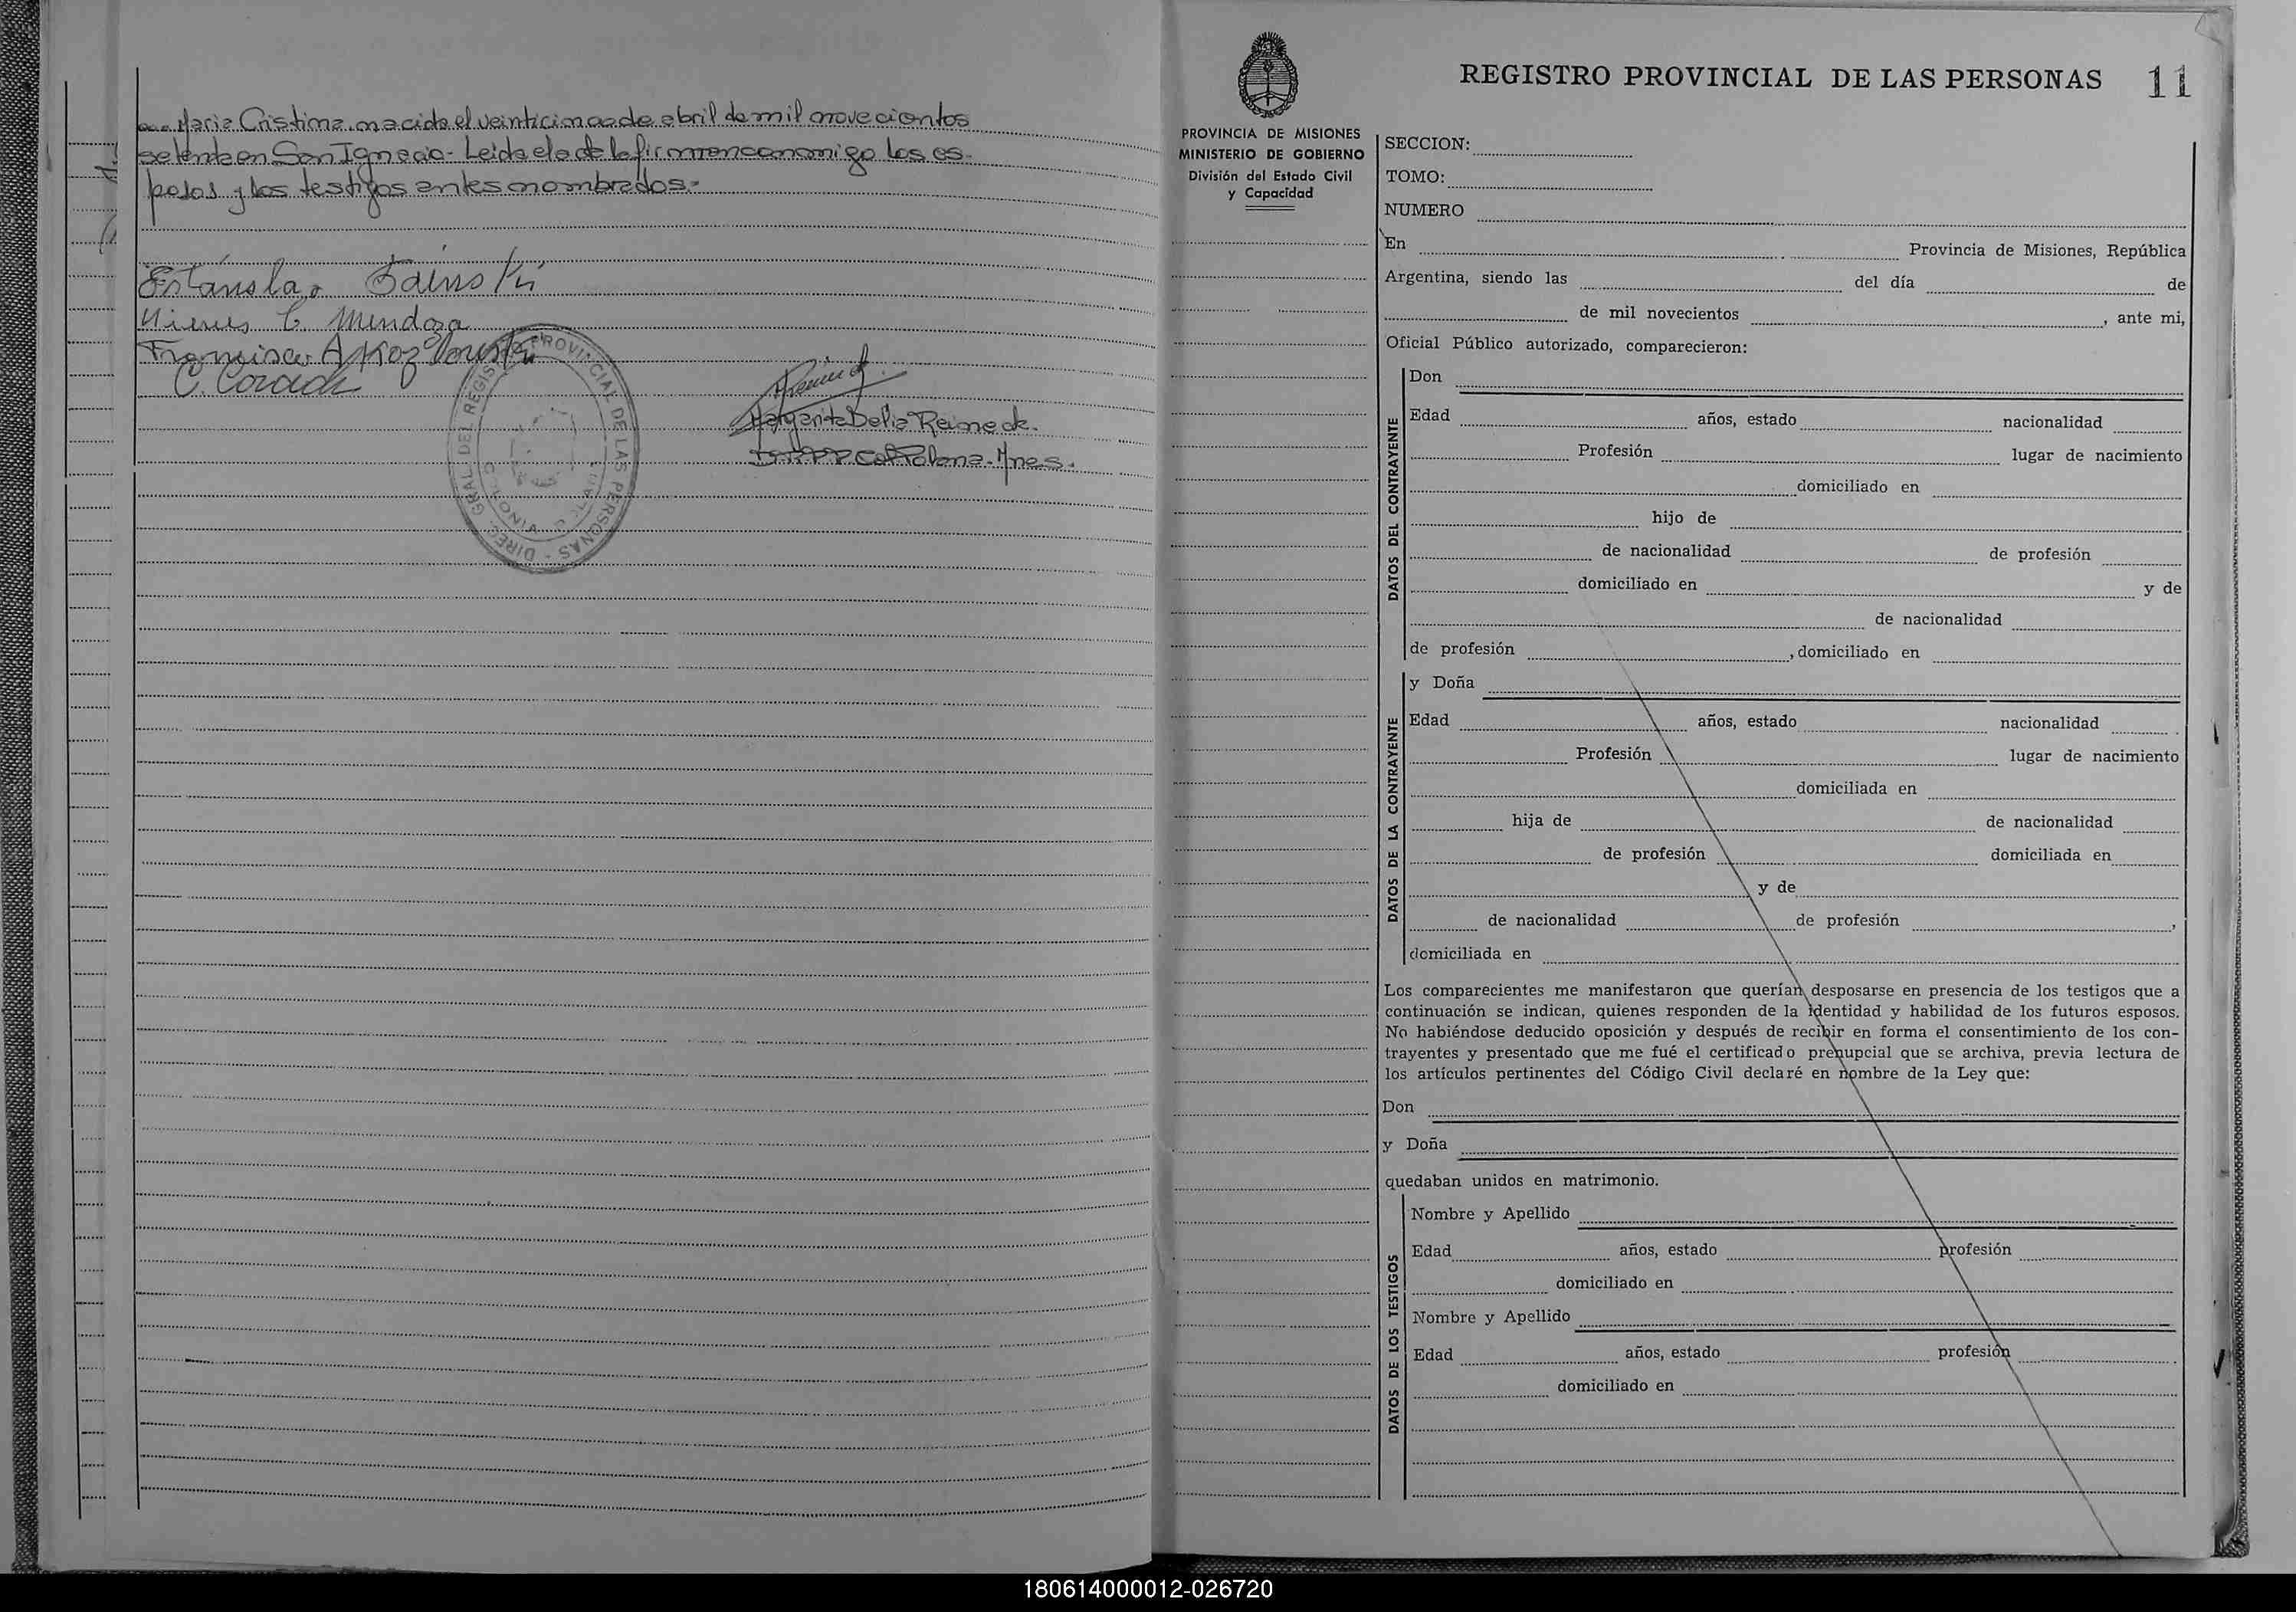 Maria Cristina. nacida el veinticinco de abril de mil novecientos
setenta en San Ignacio - Leida el acta la firman conmigo los es-
posos y los testigos antes nombrados.-
Estanslao
Mendoza
Francisca
Margarita Delia Reineck.
Col Polana - Mnes.
DIREC. GRAL. DEL REGISTRO PROVINCIAL DE LAS PERSONAS
COLONIA
REGISTRO PROVINCIAL DE LAS PERSONAS 11
PROVINCIA DE MISIONES
MINISTERIO DE GOBIERNO
División del Estado Civil
y Capacidad
SECCION:
TOMO:
NUMERO
En Provincia de Misiones, República
Argentina, siendo las del día de
de mil novecientos , ante mi,
Oficial Público autorizado, comparecieron:
DATOS DEL CONTRAYENTE
Don
Edad años, estado nacionalidad
Profesión lugar de nacimiento
domiciliado en
hijo de
de nacionalidad de profesión
domiciliado en y de
de nacionalidad
de profesión , domiciliado en
DATOS DE LA CONTRAYENTE
y Doña
Edad años, estado nacionalidad
Profesión lugar de nacimiento
domiciliada en
hija de de nacionalidad
de profesión domiciliada en
y de
de nacionalidad de profesión ,
domiciliada en
Los comparecientes me manifestaron que querían desposarse en presencia de los testigos que a
continuación se indican, quienes responden de la identidad y habilidad de los futuros esposos.
No habiéndose deducido oposición y después de recibir en forma el consentimiento de los con-
trayentes y presentado que me fué el certificado prenupcial que se archiva, previa lectura de
los artículos pertinentes del Código Civil declaré en nombre de la Ley que:
Don
y Doña
quedaban unidos en matrimonio.
DATOS DE LOS TESTIGOS
Nombre y Apellido
Edad años, estado profesión
domiciliado en
Nombre y Apellido
Edad años, estado profesión
domiciliado en
180614000012-026720